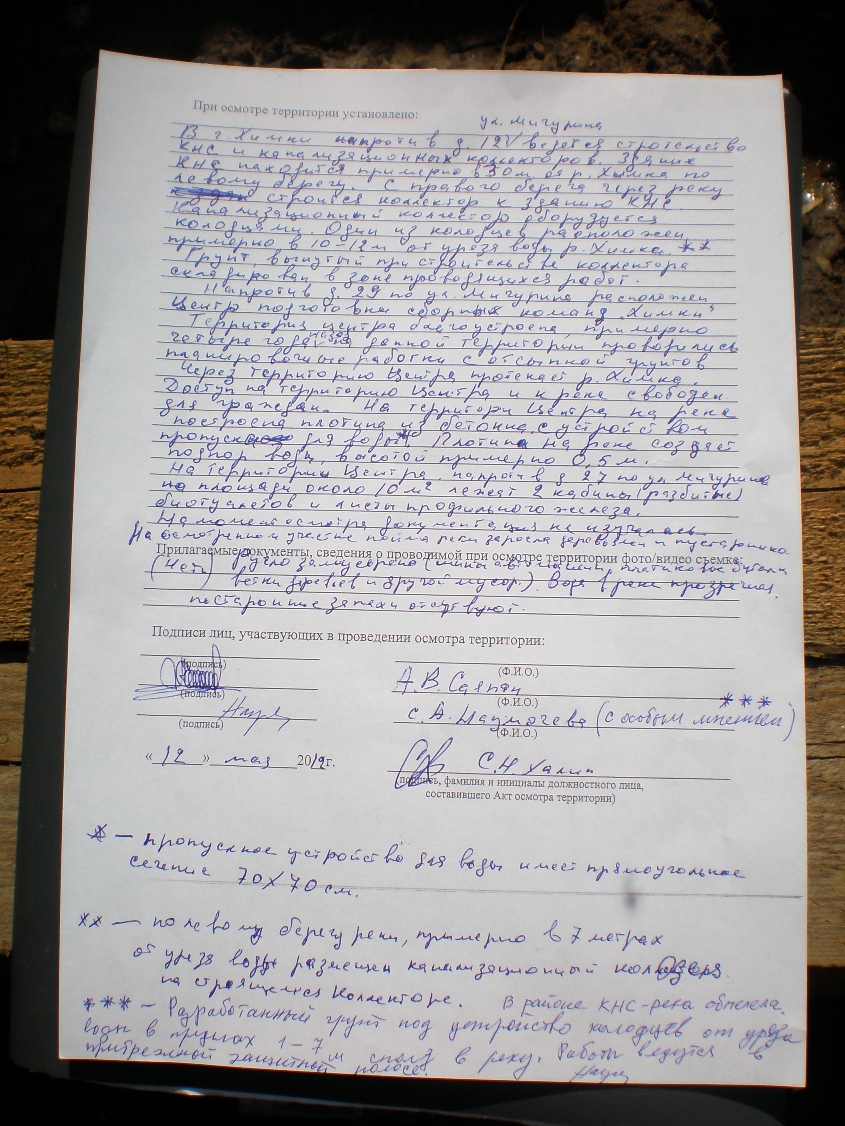 При осмотре территории установлено:
ул. Мичурина
В г. Химки напротив д. 12V ведется строительство
КНС и канализационных коллекторов. Здание
КНС находится примерно в 50 м от р. Химка по
левому берегу. С правого берега через реку
строится коллектор к зданию КНС
Канализационный коллектор оборудуется
колодцами. Один из колодцев расположен
примерно в 10-12 м от уреза воды р. Химка. **
Грунт, вынутый при строительстве коллектора
складирован в зоне проводящихся работ.
Напротив д. 29 по ул. Мичурина расположен
Центр подготовки сборных команд „Химки"
Территория центра благоустроена, примерно
четыре года назад на данной территории проводились
планировочные работы с отсыпкой грунтов
Через территорию Центра протекает р. Химка.
Доступ на территорию Центра и к реке свободен
для граждан. На территори Центра на реке
построена плотина из бетона с устройством
пропуска для воды*. Плотина на реке создает
подпор воды, высотой примерно 0,5 м.
На территории Центра, напротив д. 27 по ул. Мичурина
на площади около 10 м² лежат 2 кабины (разбитые)
биотуалетов и листы профильного железа.
На момент осмотра документация не изучалась.
На осмотренном участке пойма реки заросла деревьями и кустарником
Прилагаемые документы, сведения о проводимой при осмотре территории фото/видео съемке:
(нет) русло замусорено (шины автомашин, пластиковые бутылки
ветки деревьев и другой мусор.). Вода в реке прозрачная,
посторонние запахи отсутствуют.
Подписи лиц, участвующих в проведении осмотра территории:
(подпись)
(Ф.И.О.)
А.В. Саяпин
(подпись)
(Ф.И.О.)
***
С.А. Наумочева (с особым мнением)
(подпись)
(Ф.И.О.)
« 12 » мая 2012г.
С.Н. Халин
(подпись, фамилия и инициалы должностного лица,
составившего Акт осмотра территории)
* — пропускное устройство для воды имеет прямоугольное
сечение 70 X 70 см.
** — по левому берегу реки, примерно в 7 метрах
от уреза воды размещен канализационный
на строящемся коллекторе. В районе КНС - река обмелела.
*** - Разработанный грунт под устройство колодцев от уреза
воды в пределах 1-7 м сполз в реку. Работы ведутся в
прибрежной защитной полосе.